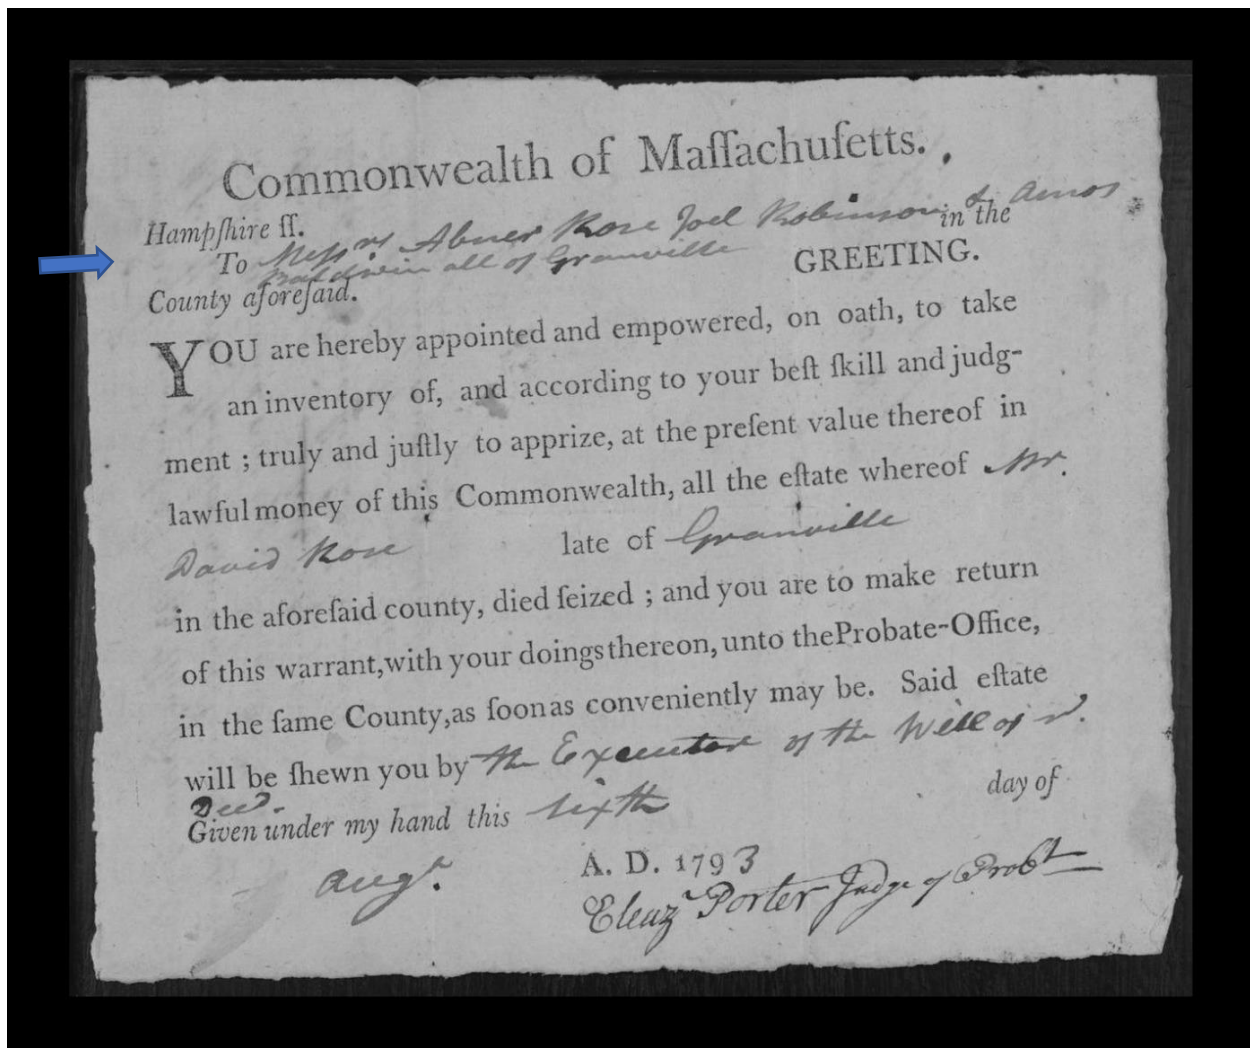 Commonwealth of Maſſachuſetts.
Hampſhire ſſ.
To Meſsrs Abner Rose Joel Robinson & Amos in the
Baldwin all of Granville GREETING.
County aforeſaid.
YOU are hereby appointed and empowered, on oath, to take
an inventory of, and according to your beſt ſkill and judg-
ment ; truly and juſtly to apprize, at the preſent value thereof in
lawful money of this Commonwealth, all the eſtate whereof Mr.
David Rose late of Granville
in the aforeſaid county, died ſeized ; and you are to make return
of this warrant, with your doings thereon, unto the Probate-Office,
in the ſame County, as ſoon as conveniently may be. Said eſtate
will be ſhewn you by the Executor of the Will of sd.
Decd.
Given under my hand this sixth day of
Augt. A. D. 1793
Eleazr Porter Judge of Probt